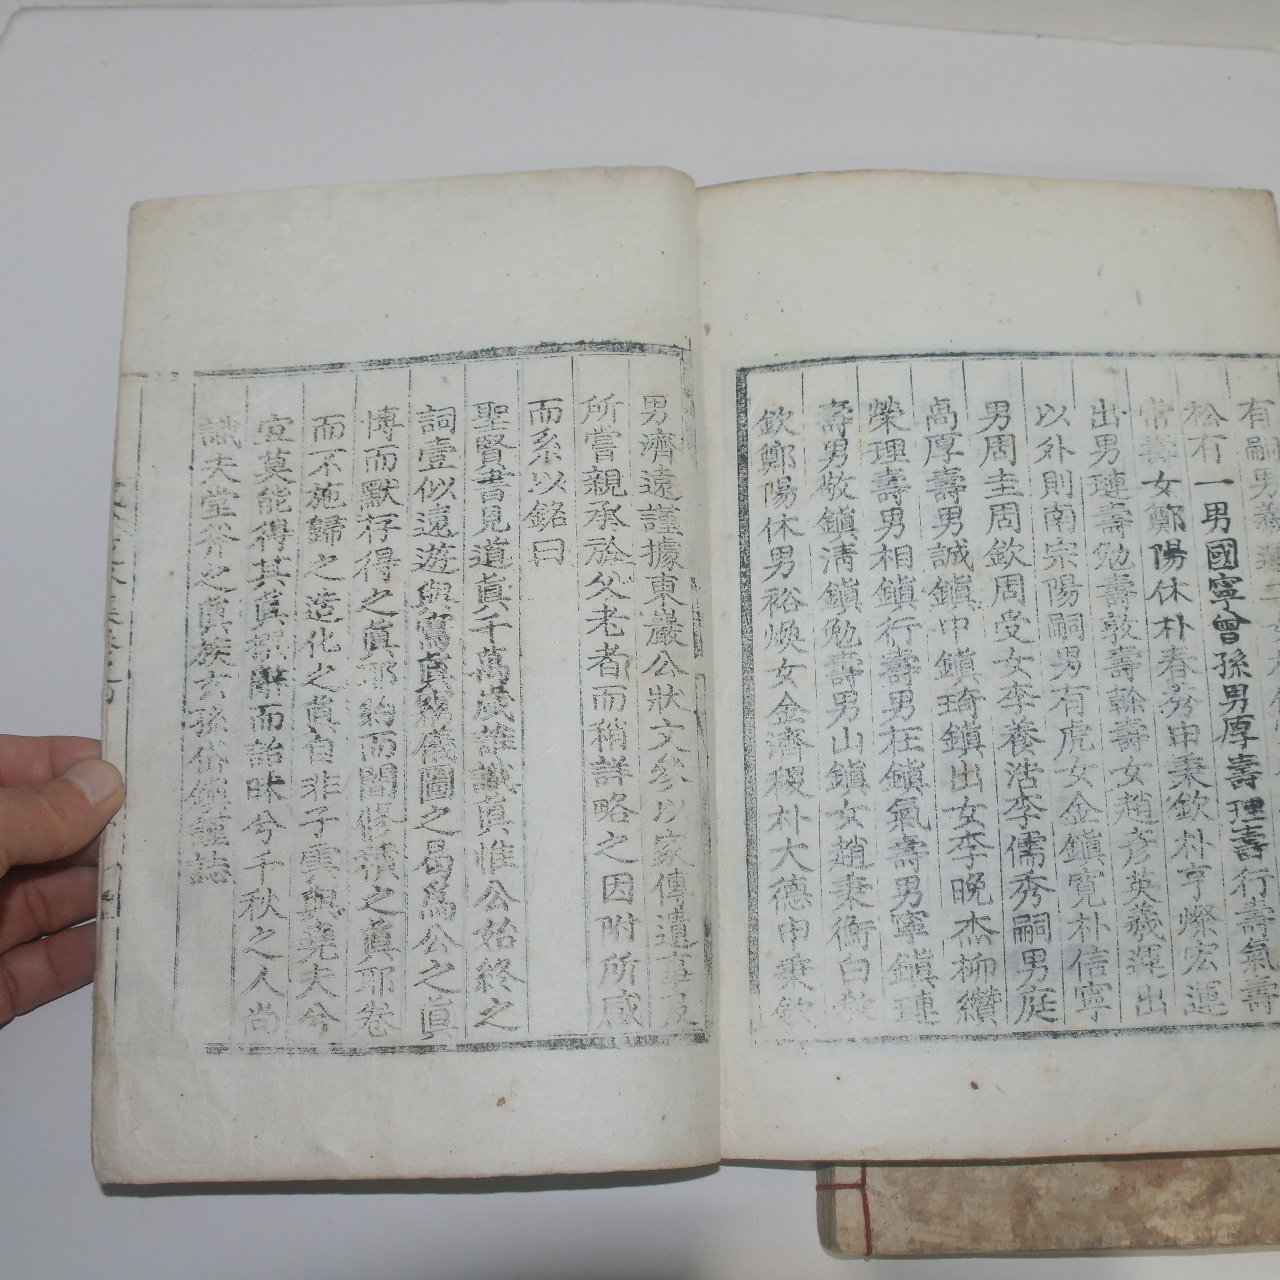 有嗣男羲運二女
松有一男國寧曾孫男厚壽理壽行壽氣壽
常壽女鄭陽休朴春芬申秉欽朴亨燦宏運
出男璉壽勉壽敦壽榦壽女趙彦英羲運出
以外則南宗陽嗣男有虎女金鎭寬朴信寧
男周圭周欽周受女李養浩李儒秀嗣男庭
高厚壽男誠鎭中鎭琦鎭出女李晩杰柳纘
榮理壽男相鎭行壽男在鎭氣壽男寧鎭璉
壽男敬鎭淸鎭勉壽男山鎭女趙秉衡白
欽鄭陽休男裕煥女金濟稷朴大德申秉欽
男濟遠謹據東巖公狀文參以家傳遺事及
所嘗親承於父老者而稍詳略之因附所感
而系以銘曰
聖賢書見道眞千萬歲誰識眞惟公始終之
詞壹似遠遊與寫眞儀圖之曷爲公之眞
博而默存得之眞耶約而闇修積之眞耶卷
而不施歸之造化之眞自非子雲與堯夫兮
宣莫能得其眞撰辭而詔昧兮千秋之人尚
識夫堂斧之眞族玄孫鎭謹誌